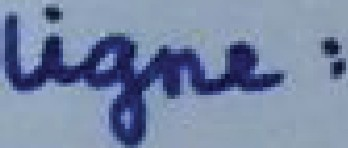 ligne :